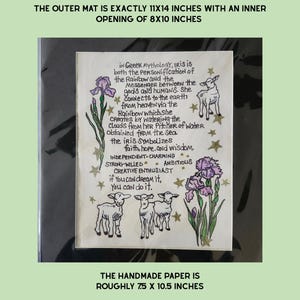 THE OUTER MAT IS EXACTLY 11X14 INCHES WITH AN INNER
OPENING OF 8X10 INCHES
in Greek Mythology, iris is
both the Personification of
the Rainbow and the
Messenger between the
gods and humans. She
connects to the earth
from heaven via the
Rainbow which she
creates by watering the
Clouds from her Pitcher of Water
obtained from the sea.
the iris symbolizes
faith, hope, and wisdom.
INDEPENDENT - CHARMING
STRONG-WILLED AMBITIOUS
CREATIVE ENTHUSIAST
if You can dream it,
You can do it.
THE HANDMADE PAPER IS
ROUGHLY 7.5 X 10.5 INCHES